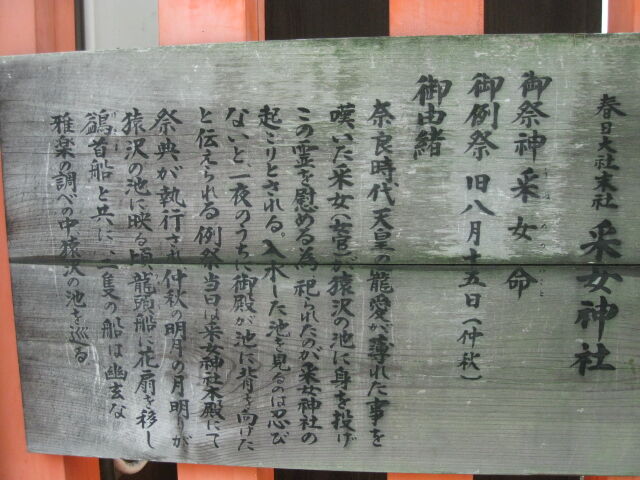 春日大社末社 采女神社
御祭神 采女命
うねめのみこと
御例祭 旧八月十五日(仲秋)
御由緒
奈良時代天皇の寵愛が薄れた事を
嘆いた采女(女官)が猿沢の池に身を投げ
この霊を慰める為祀られたのが采女神社の
起こりとされる。入水した池を見るのは忍び
ないと、一夜のうちに御殿が池に背を向けた
と伝えられる例祭当日は采女神社本殿にて
祭典が執行され仲秋の明月の月明りが
猿沢の池に映る頃龍頭船に花扇を移し
鷁首船と共に、二隻の船は幽玄な
雅楽の調べの中猿沢の池を巡る